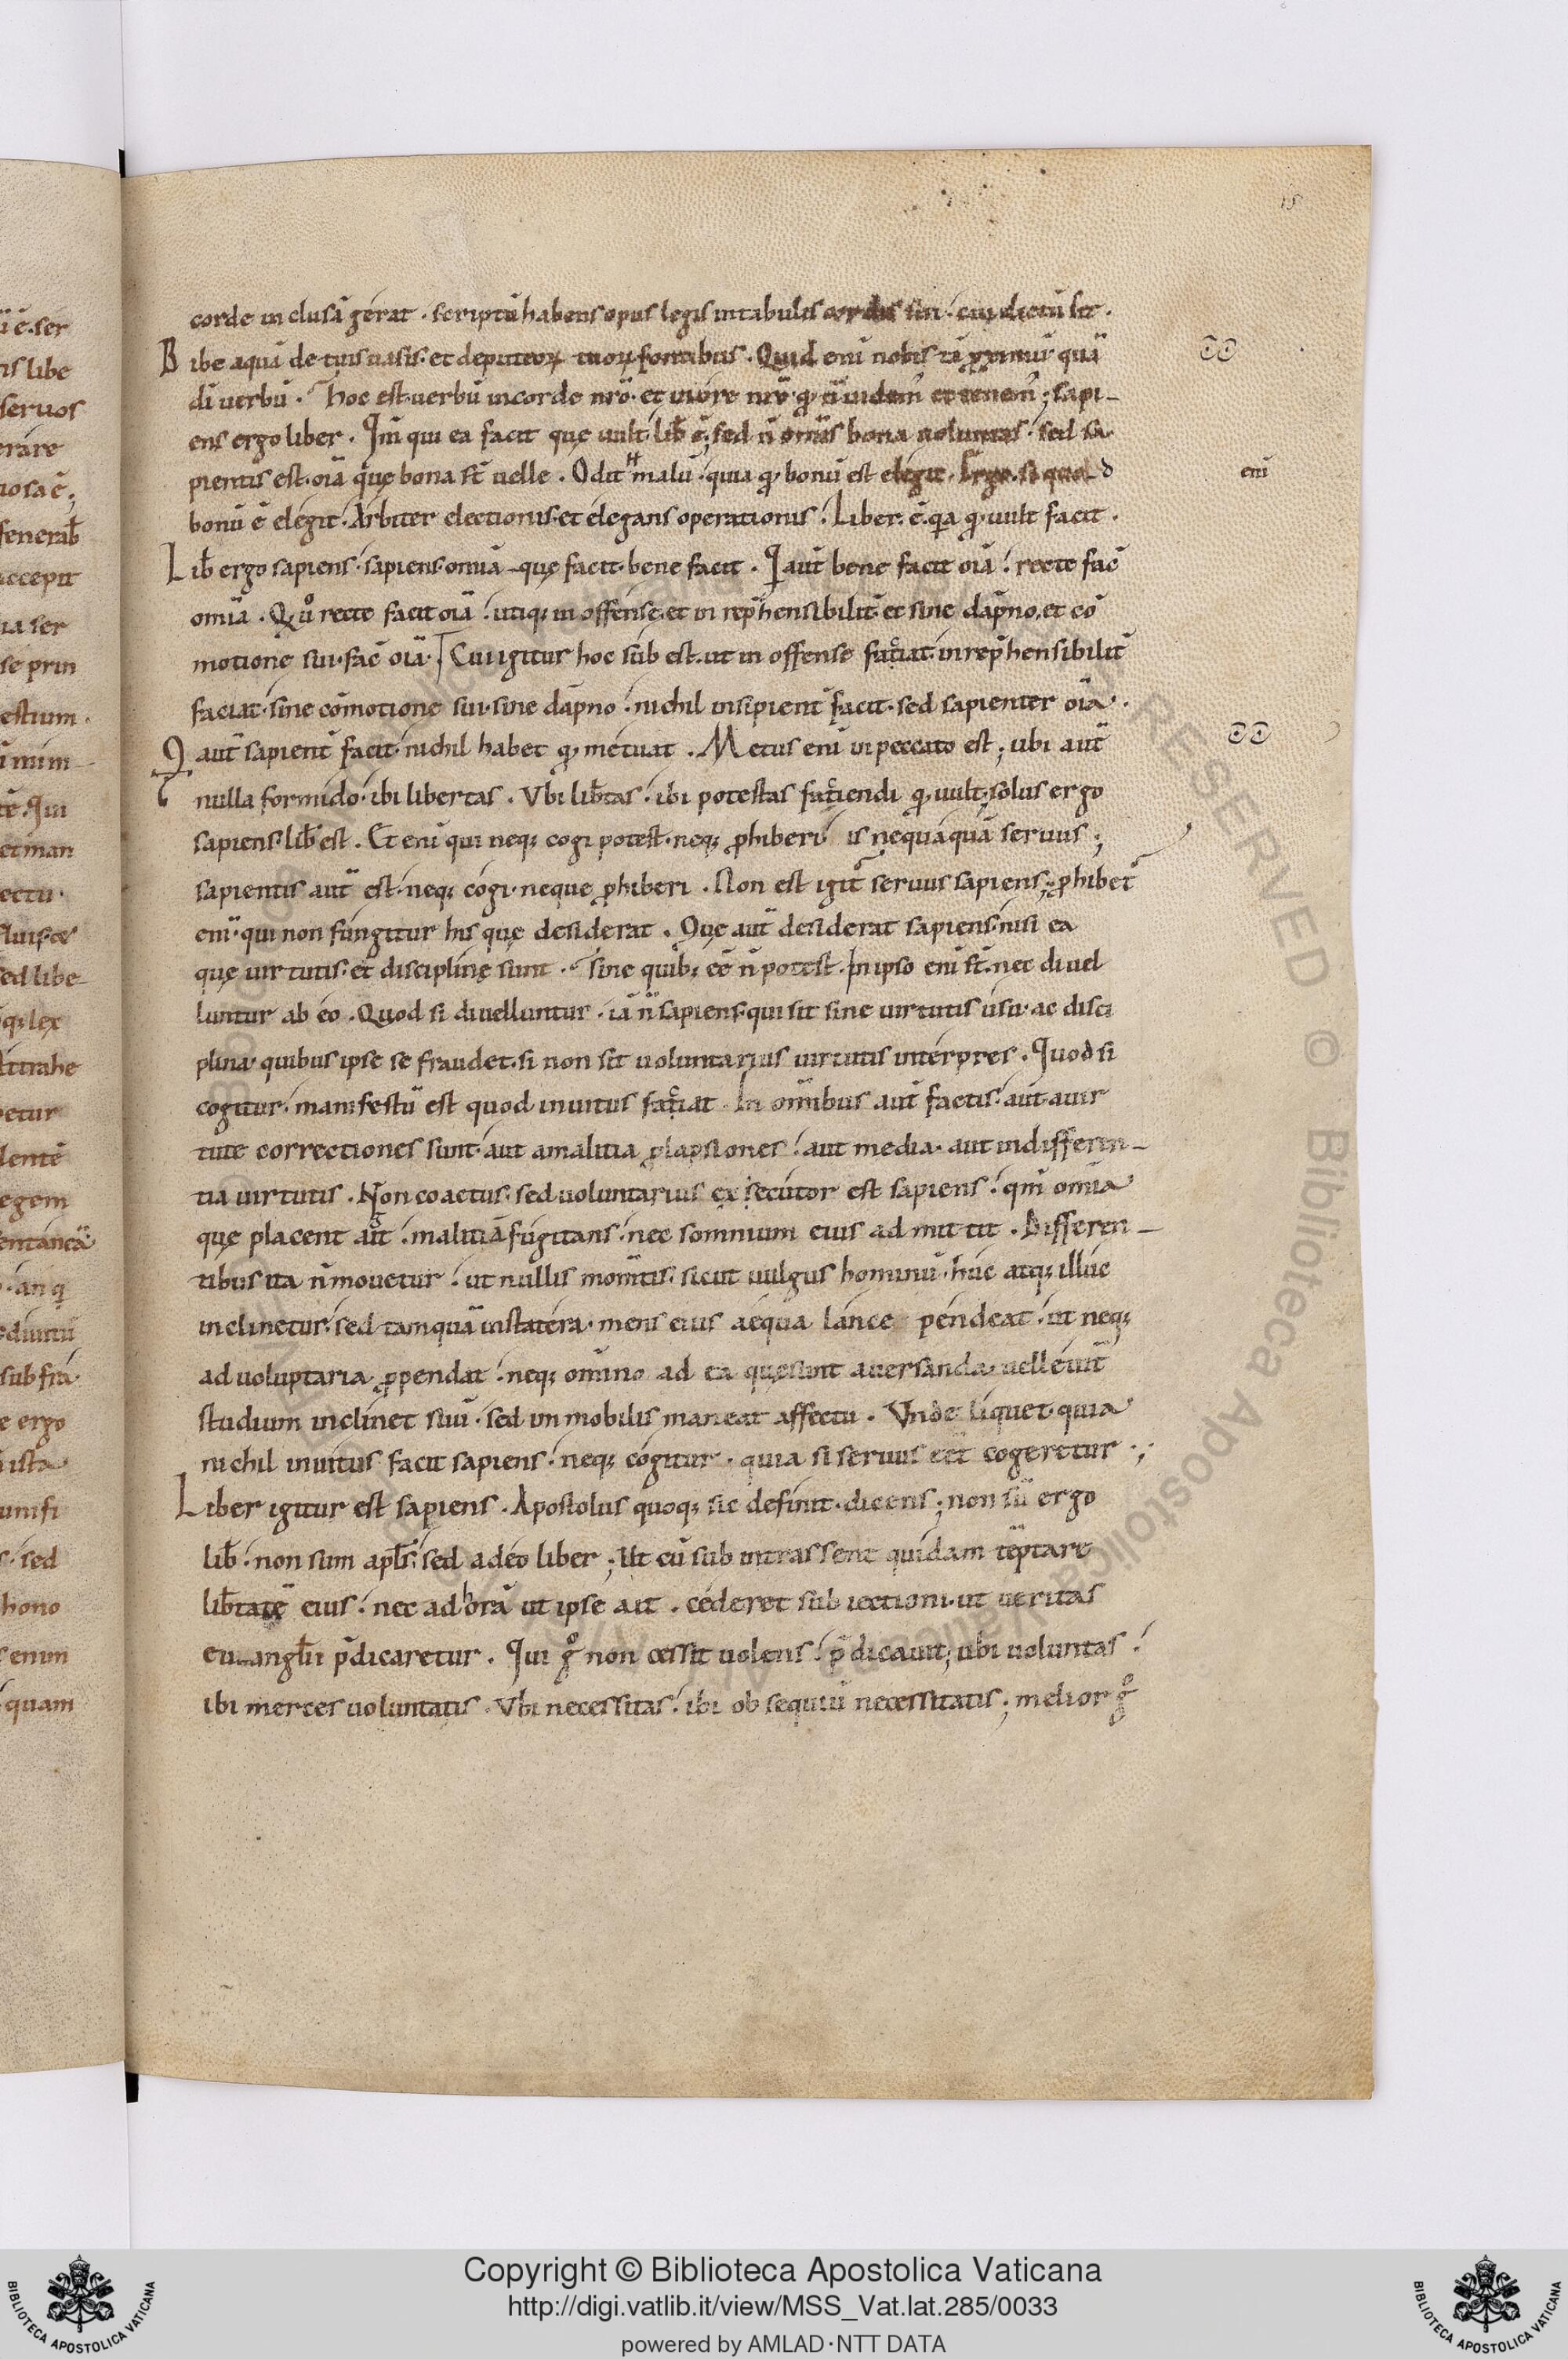 15
corde inclusā gerat · scriptū habens opus legis in tabulis cordis sui · cui dictū sit ·
Bibe aquā de tuis uasis · et de puteoꝝ tuoꝝ fontibus · Quid enī nobis tā ꝓximū quā
di uerbū · hoc est uerbū in corde nr̄o · et in ore nr̄o qꝫ n̄ uidem̄ et tenem̄ ; sapi-
ens ergo liber · Qm̄ qui ea facit quę uult lib̄ ē ; sed n̄ omīs bona uoluntas · sed sa
pientis est · oīa quęque bona st̄ uelle · Odit malū · quia qꝫ bonū est elegit · Ergo si quod
bonū ē elegit · Arbiter electionis · et elegans operationis · Liber ē qa qꝫ uult facit ·
Lib̄ ergo sapiens · sapiens omīa quę facit · bene facit · Q aut̄ bene facit oīa · recte fac̄
omīa · Qͥ u̇ recte facit oīa · utiqꝫ inoffense et inrep̄hensibilit̄ et sine dāpno, et cō
motione sui · fac̄ oīa · Cui igitur hoc subest · ut inoffense faciat · inrep̄hensibilit̄
faciat · sine cōmotione sui · sine dāpno · nichil insipient̄ facit · sed sapienter oīa ·
Q aut̄ sapient̄ facit · nichil habet qꝫ metuat · Metus enī in peccato est ; ubi aut̄
nulla formido · ibi libertas · Vbi lib̄tas · ibi potestas faciendi qꝫ uult ; solus ergo
sapiens · lib̄ est · Et enī qui neqꝫ cogi potest · neqꝫ ꝓhiberi · is nequāquā seruus ;
sapientis aut̄ est · neqꝫ cogi · neque ꝓhiberi · Non est igit̄ seruus sapiens ; ꝓhibet̄
enī · qui non fungitur his quę desiderat · Quę aut̄ desiderat sapiens · nisi ea
quę uirtutis · et disciplinę sunt · sine quibꝫ eē n̄ potest · In ipso enī st̄ · nec diuel
luntur ab eo · Quod si diuelluntur · iā n̄ sapiens · qui sit sine uirtutis usu · ac disci
plina · quibus ipse se fraudet · si non sit uoluntarius uirtutis interpres · Quod si
cogitur · manifestū est quod inuitus faciat · In omnibus aut̄ factis · aut a uir
tute correctiones sunt · aut a malitia ꝓlapsiones · aut media · aut indifferen-
tia uirtutis · Non coactus · sed uoluntarius exsecutor est sapiens · qm̄ omīa
quę placent agit · malitiā fugitans · nec somnium eius admittit · Differen-
tibus ita n̄ mouetur · ut nullis momtis · sicut uulgus hominū · huc atqꝫ illuc
inclinetur · sed tamquā in statera · mens eius aequa lance pendeat · ut neqꝫ
ad uoluptaria ꝓpendat · neqꝫ omīno ad ea quę sunt auersanda uelleuit̄
studium inclinet suū · sed inmobilis maneat affectu · Vnde liquet · quia
nichil inuitus facit sapiens · neqꝫ cogitur · quia si seruus eēt cogeretur ·;
Liber igitur est sapiens · Apostolus quoqꝫ sic definit · dicens ; non sū ergo
lib̄ · non sum apl̄s · sed adeo liber ; Ut cū subintrassent quidam tēptare
lib̄tatē eius · nec ad horā ut ipse ait · cederet subiectioni · ut ueritas
euuanglii p̄dicaretur · Qui gͦ non cessit uolens · p̄dicauit ; ubi uoluntas ·
ibi merces uoluntatis · Vbi necessitas · ibi obsequiū necessitatis ; melior gͦ
enī
Copyright © Biblioteca Apostolica Vaticana
http://digi.vatlib.it/view/MSS_Vat.lat.285/0033
powered by AMLAD·NTT DATA
BIBLIOTECA APOSTOLICA VATICANA
BIBLIOTECA APOSTOLICA VATICANA